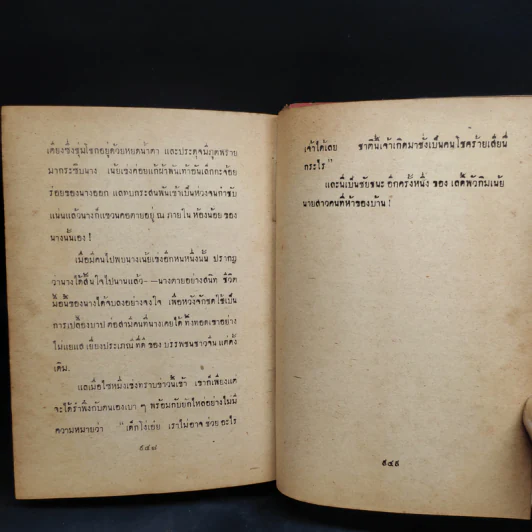 เตียงซึ่งชุ่มโชกอยู่ด้วยหยดน้ำตา และประดุจมีภูตพราย
มากระซิบนาง เน้ยเซ่งค่อยแก้ผ้าพันเท้าอันเล็กกะจ้อย
ร่อยของนางออก และทบกระสนพันเข้าเป็นห่วงจนกำชับ
แน่นแล้วนางก็แขวนคอตายอยู่ ณ ภายใน ห้องน้อย ของ
นางนั้นเอง !
เมื่อมีคนไปพบนางเน้ยเซ่งอีกหนหนึ่งนั้น ปรากฏ
ว่านางได้สิ้นใจไปนานแล้ว——นางตายอย่างสนิท ชีวิต
น้อยของนางได้จบลงอย่างจงใจ เพื่อหวังจักชดใช้เป็น
การเปลื้องบาป ต่อสามีคนที่นางเคยได้ ทิ้งทอดเขาอย่าง
ไม่แยแส เยี่ยงประเภณีที่ดี ของ บรรพชนชาวจีน แต่ดั้ง
เดิม.
และเมื่อไซหมึ่งเซ่งทราบข่าวนี้เข้า เขาก็เพียงแต่
จะได้รำพึงกับตนเองเบา ๆ พร้อมกับยักไหล่อย่างไม่มี
ความหมายว่า " เด็กโง่เอ๋ย เราไม่อาจ ช่วย อะไร
๕๔๗
เจ้าได้เลย ชาตินี้เจ้าเกิดมาช่างเป็นคนโชคร้ายเสียนี่
กระไร "
และนี่เป็นชัยชนะ อีกครั้งหนึ่ง ของ เล่ห์พัวกิมเน้ย
นายสาวคนที่ห้าของบ้าน !
๕๔๘